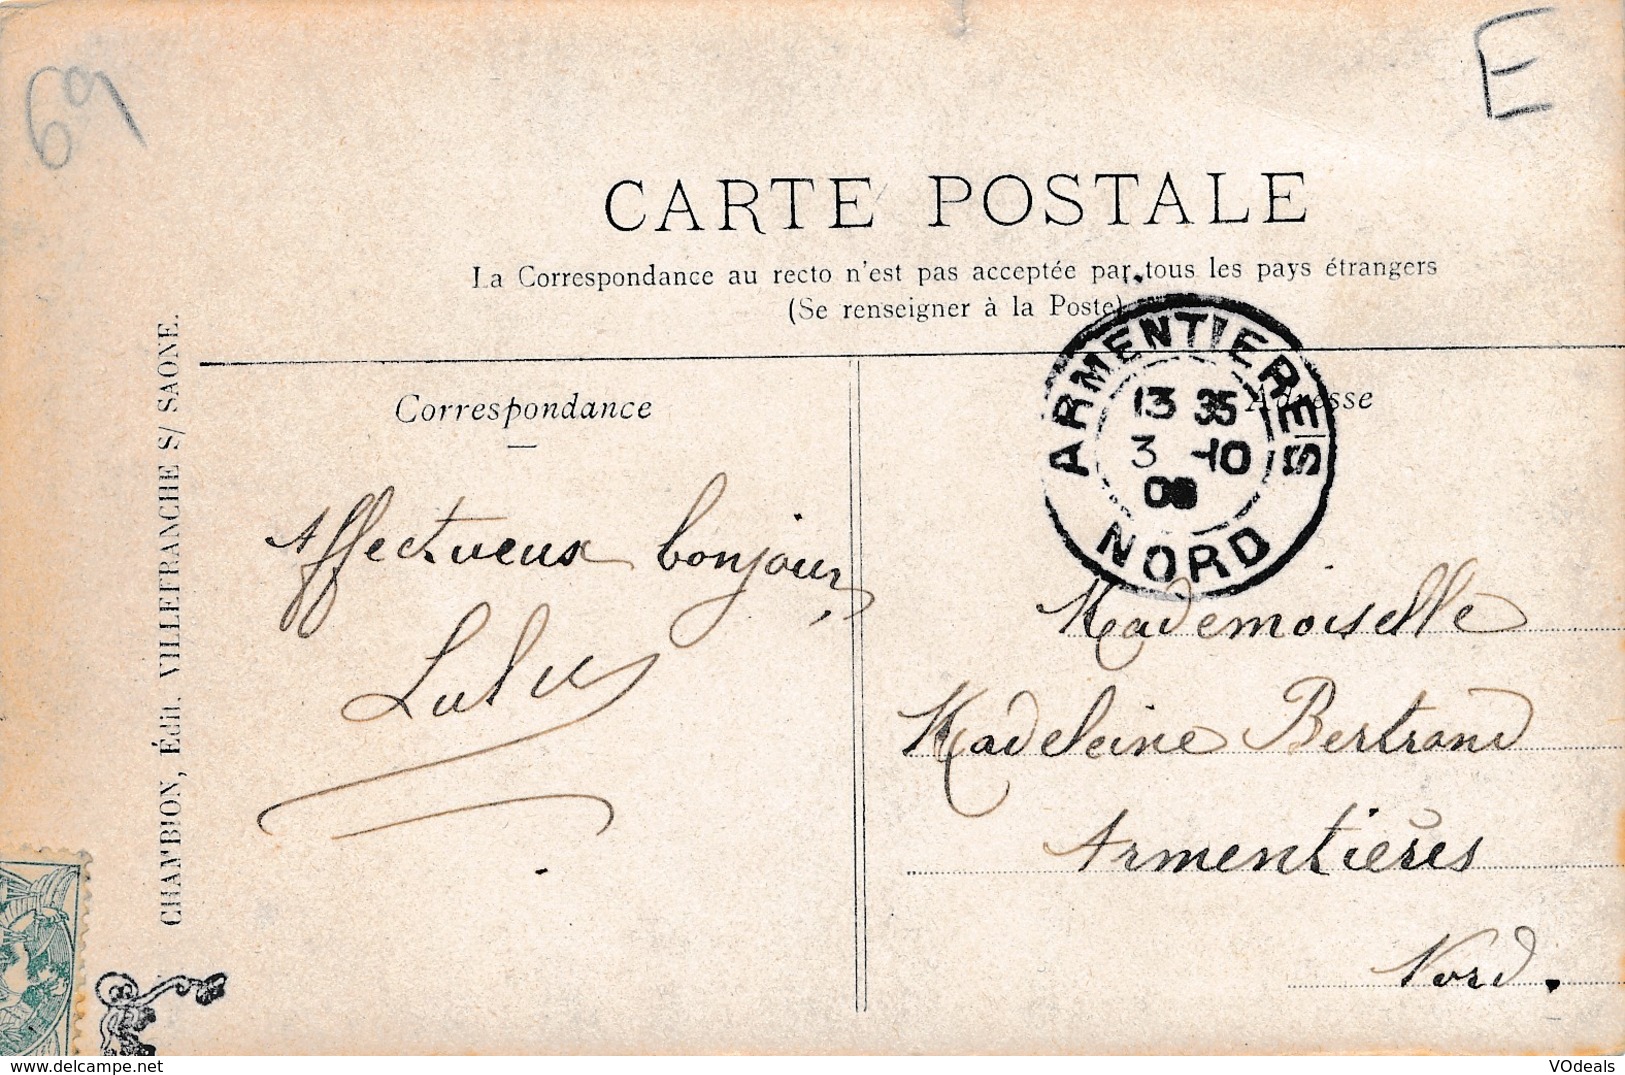 69
E
CARTE POSTALE
La Correspondance au recto n'est pas acceptée par tous les pays étrangers
(Se renseigner à la Poste)
CHAMBION, Édit. VILLEFRANCHE S/ SAONE.
Correspondance
Adresse
ARMENTIERES
13 35
3 -10
NORD
Affectueux bonjour,
Lulu
Mademoiselle
Madeleine Bertrand
Armentières
Nord.
VOdeals